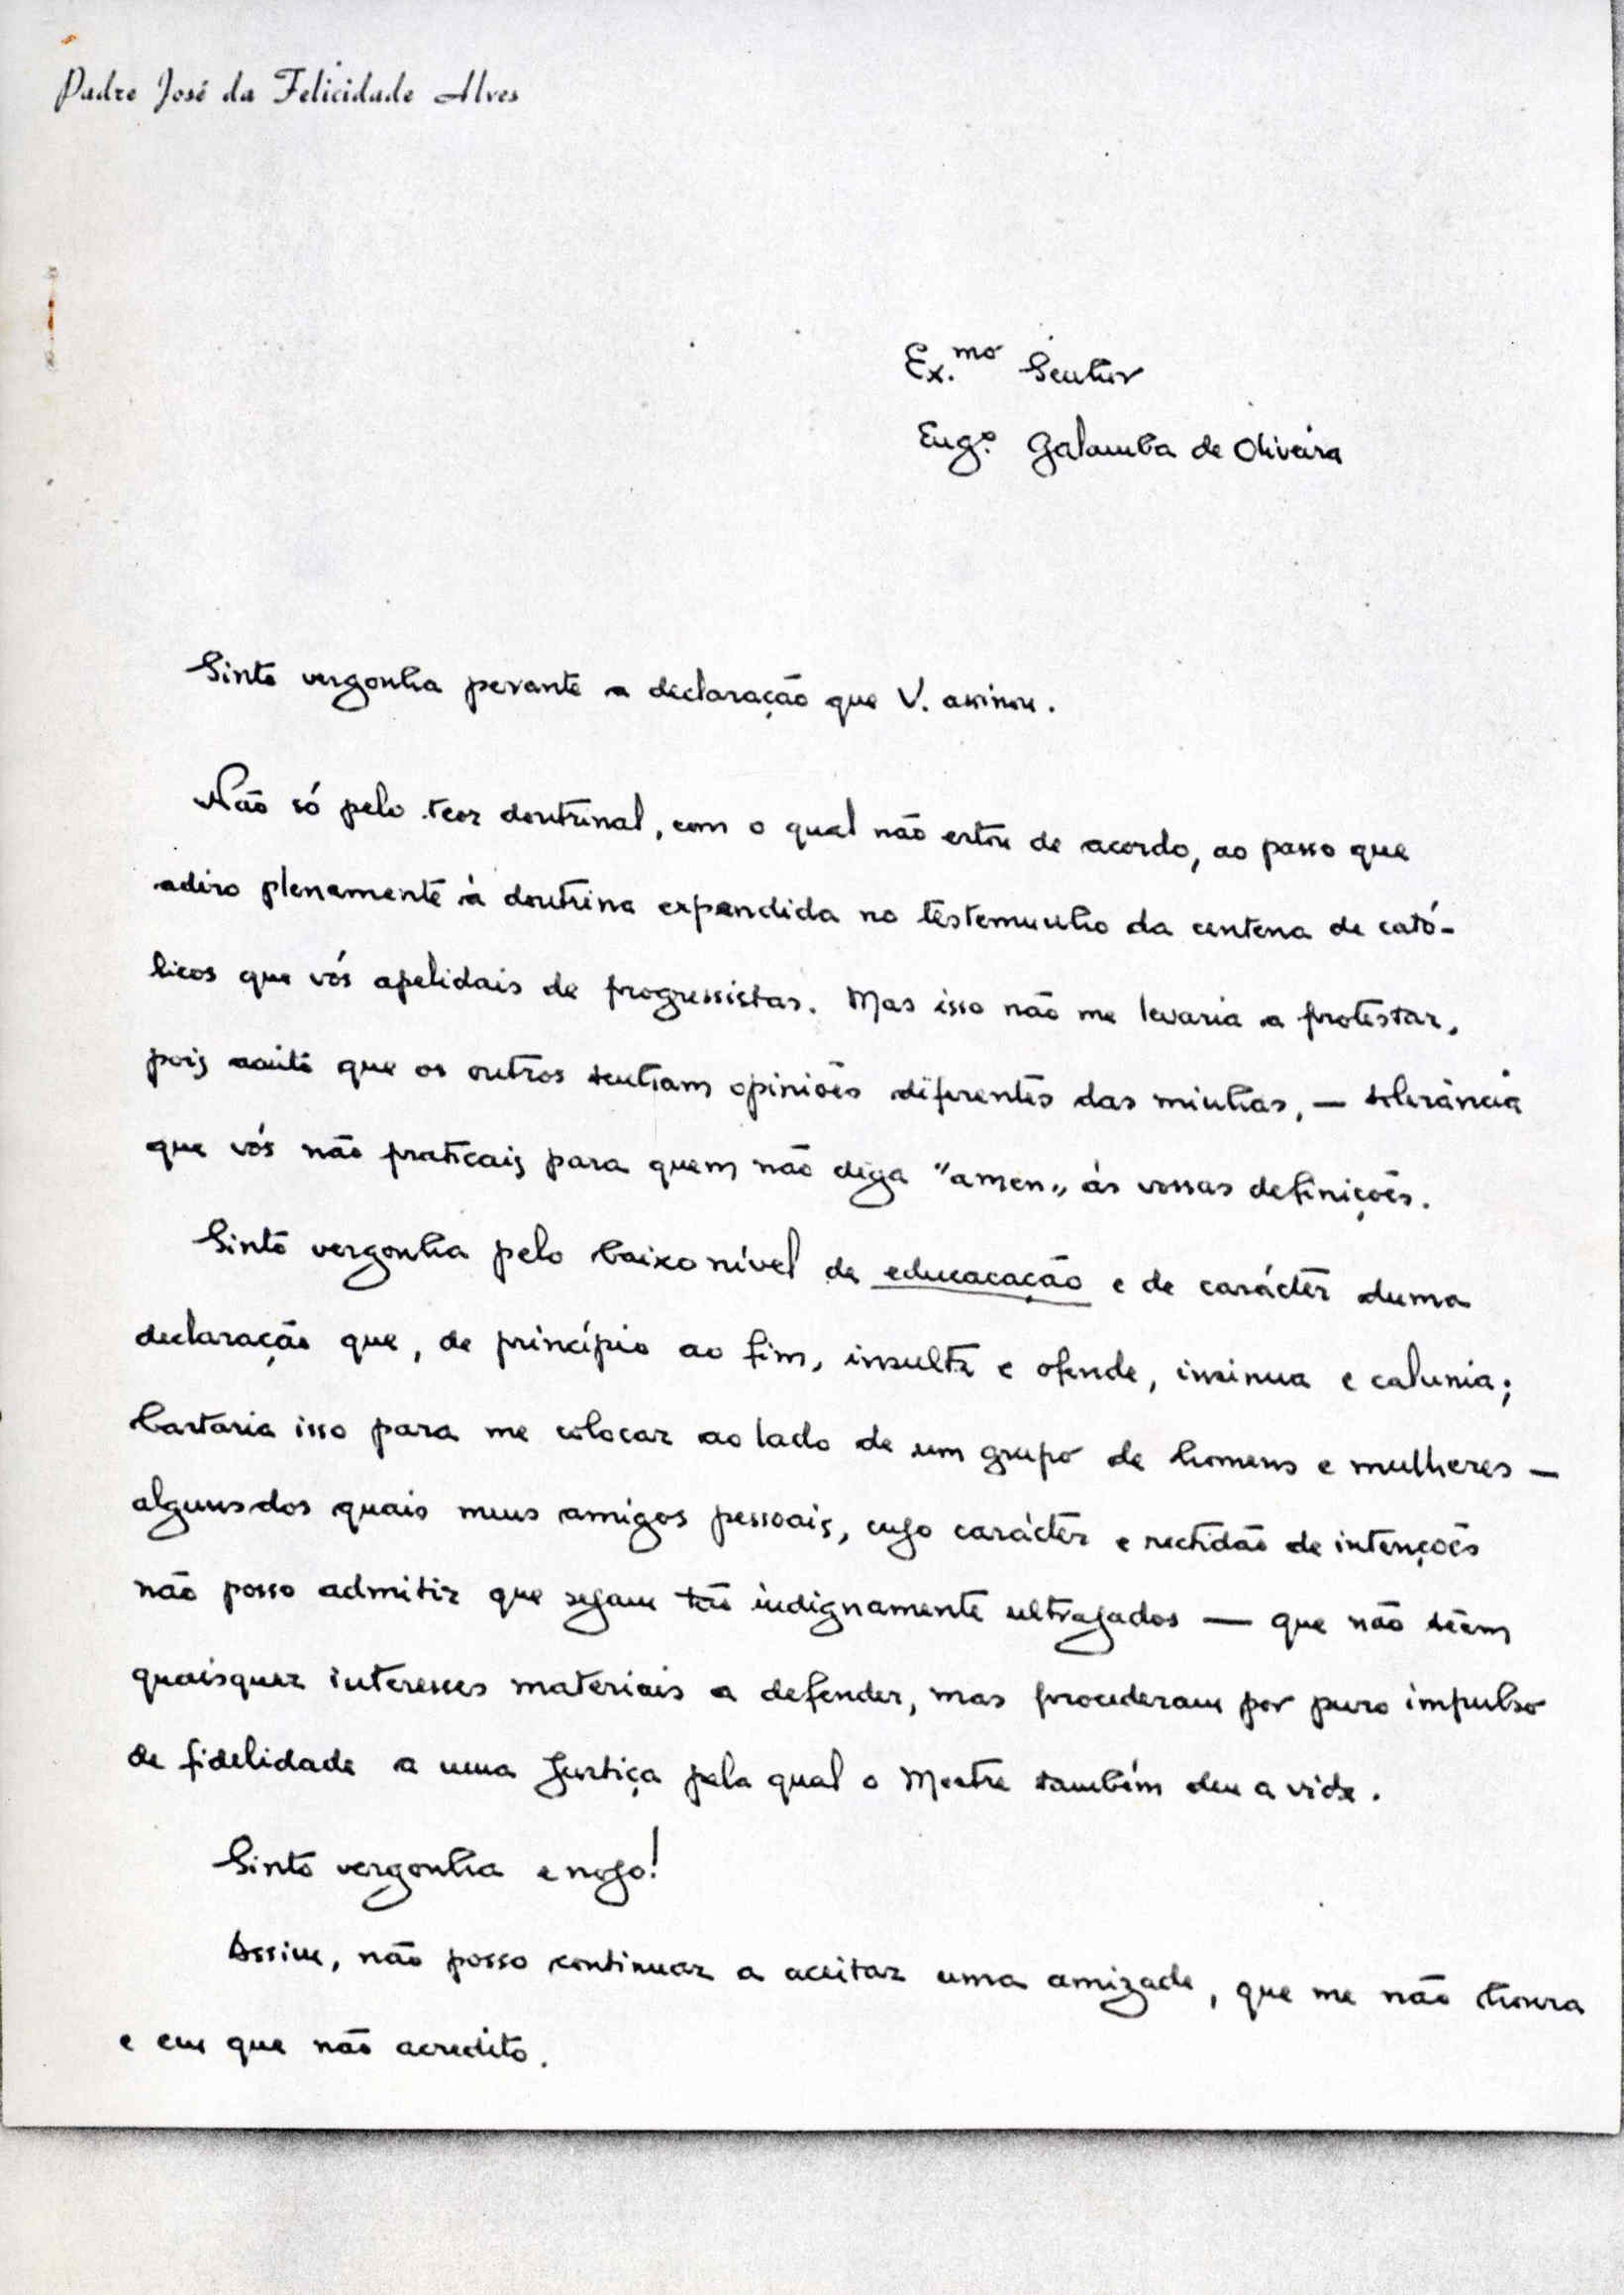 Padre José da Felicidade Alves
Ex.mo Senhor
Eng.o Galamba de Oliveira
Sinto vergonha perante a declaração que V. assinou.
Não só pelo teor doutrinal, com o qual não estou de acordo, ao passo que
adiro plenamente à doutrina expendida no testemunho da centena de cató-
licos que vós apelidais de progressistas. Mas isso não me levaria a protestar,
pois aceito que os outros tenham opiniões diferentes das minhas, — tolerância
que vós não praticais para quem não diga "amen" às vossas definições.
Sinto vergonha pelo baixo nível de educacação e de carácter duma
declaração que, de princípio ao fim, insulta e ofende, insinua e calunia;
bastaria isso para me colocar ao lado de um grupo de homens e mulheres —
alguns dos quais meus amigos pessoais, cujo carácter e rectidão de intenções
não posso admitir que sejam tão indignamente ultrajados — que não têem
quaisquer interesses materiais a defender, mas procederam por puro impulso
de fidelidade a uma Justiça pela qual o Mestre também deu a vida.
Sinto vergonha e nojo!
Assim, não posso continuar a aceitar uma amizade, que me não honra
e em que não acredito.